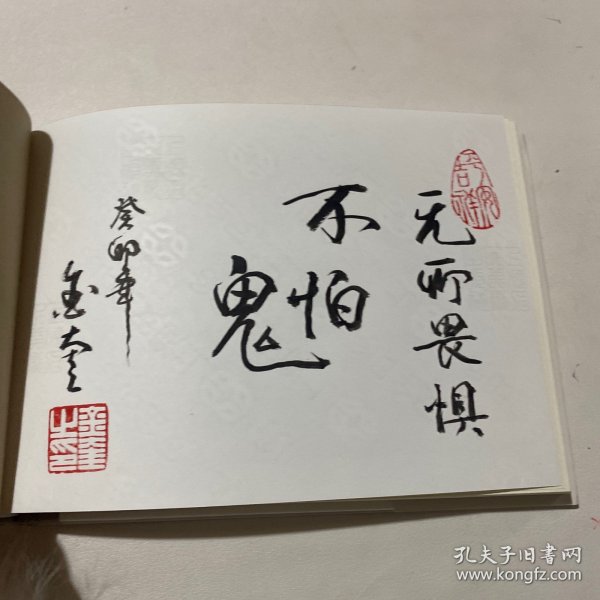 无所畏惧
不怕
鬼
癸卯年
金奎
孔夫子旧书网
www.kongfz.com